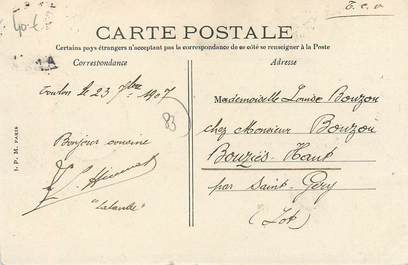 T. C. V.
CARTE POSTALE
Certains pays étrangers n'acceptant pas la correspondance de ce côté se renseigner à la Poste
Correspondance
Adresse
Toulon le 23 7bre 1907
83
Bonjour
"Lalande"
Mademoiselle Louise Bouzou
chez Monsieur Bouzou
Bouziès-Haut
par Saint-Géry
(Lot)
I. P. M. PARIS